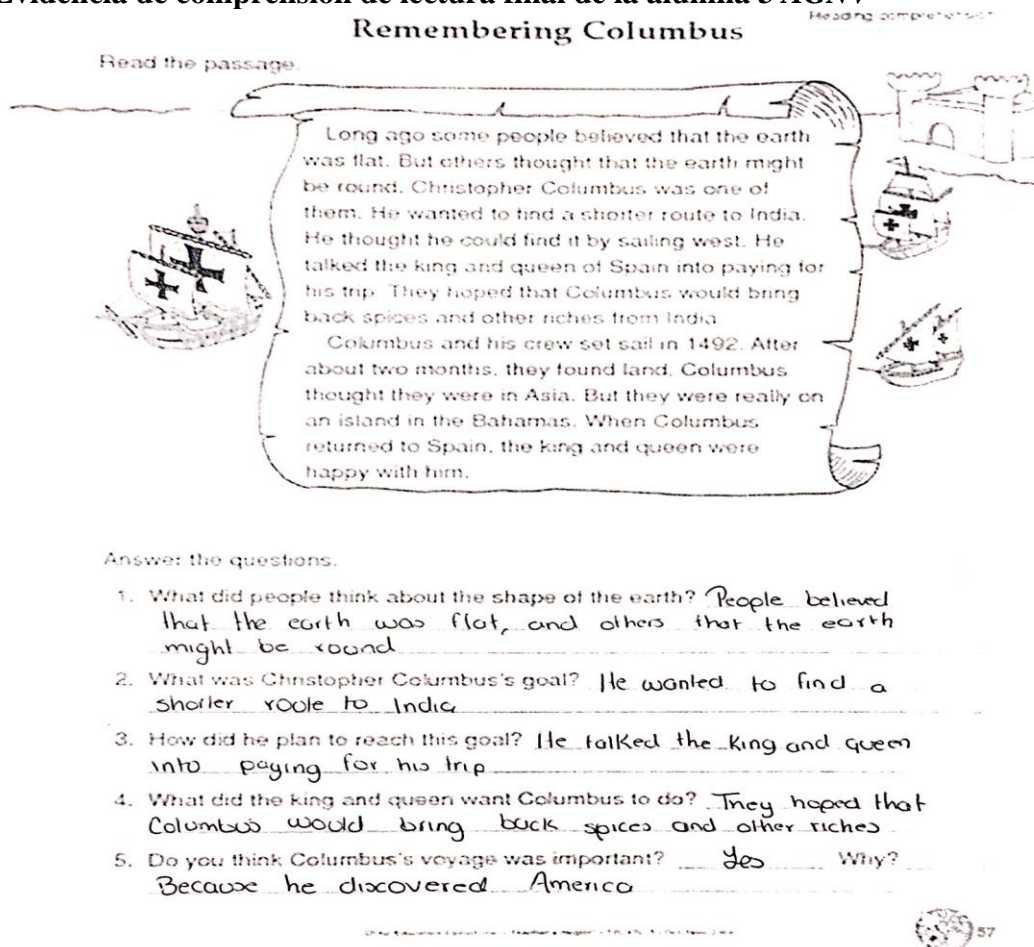 Evidencia de comprensión de lectura final de la alumna
Reading comprehension
Remembering Columbus
Read the passage.
Long ago some people believed that the earth
was flat. But others thought that the earth might
be round. Christopher Columbus was one of
them. He wanted to find a shorter route to India.
He thought he could find it by sailing west. He
talked the king and queen of Spain into paying for
his trip. They hoped that Columbus would bring
back spices and other riches from India.
Columbus and his crew set sail in 1492. After
about two months, they found land. Columbus
thought they were in Asia. But they were really on
an island in the Bahamas. When Columbus
returned to Spain, the king and queen were
happy with him.
Answer the questions.
1. What did people think about the shape of the earth? People believed
that the earth was flat, and others that the earth
might be round
2. What was Christopher Columbus's goal? He wanted to find a
shorter route to India
3. How did he plan to reach this goal? He talked the king and queen
into paying for his trip
4. What did the king and queen want Columbus to do? They hoped that
Columbus would bring back spices and other riches
5. Do you think Columbus's voyage was important? Yes Why?
Because he discovered America
57